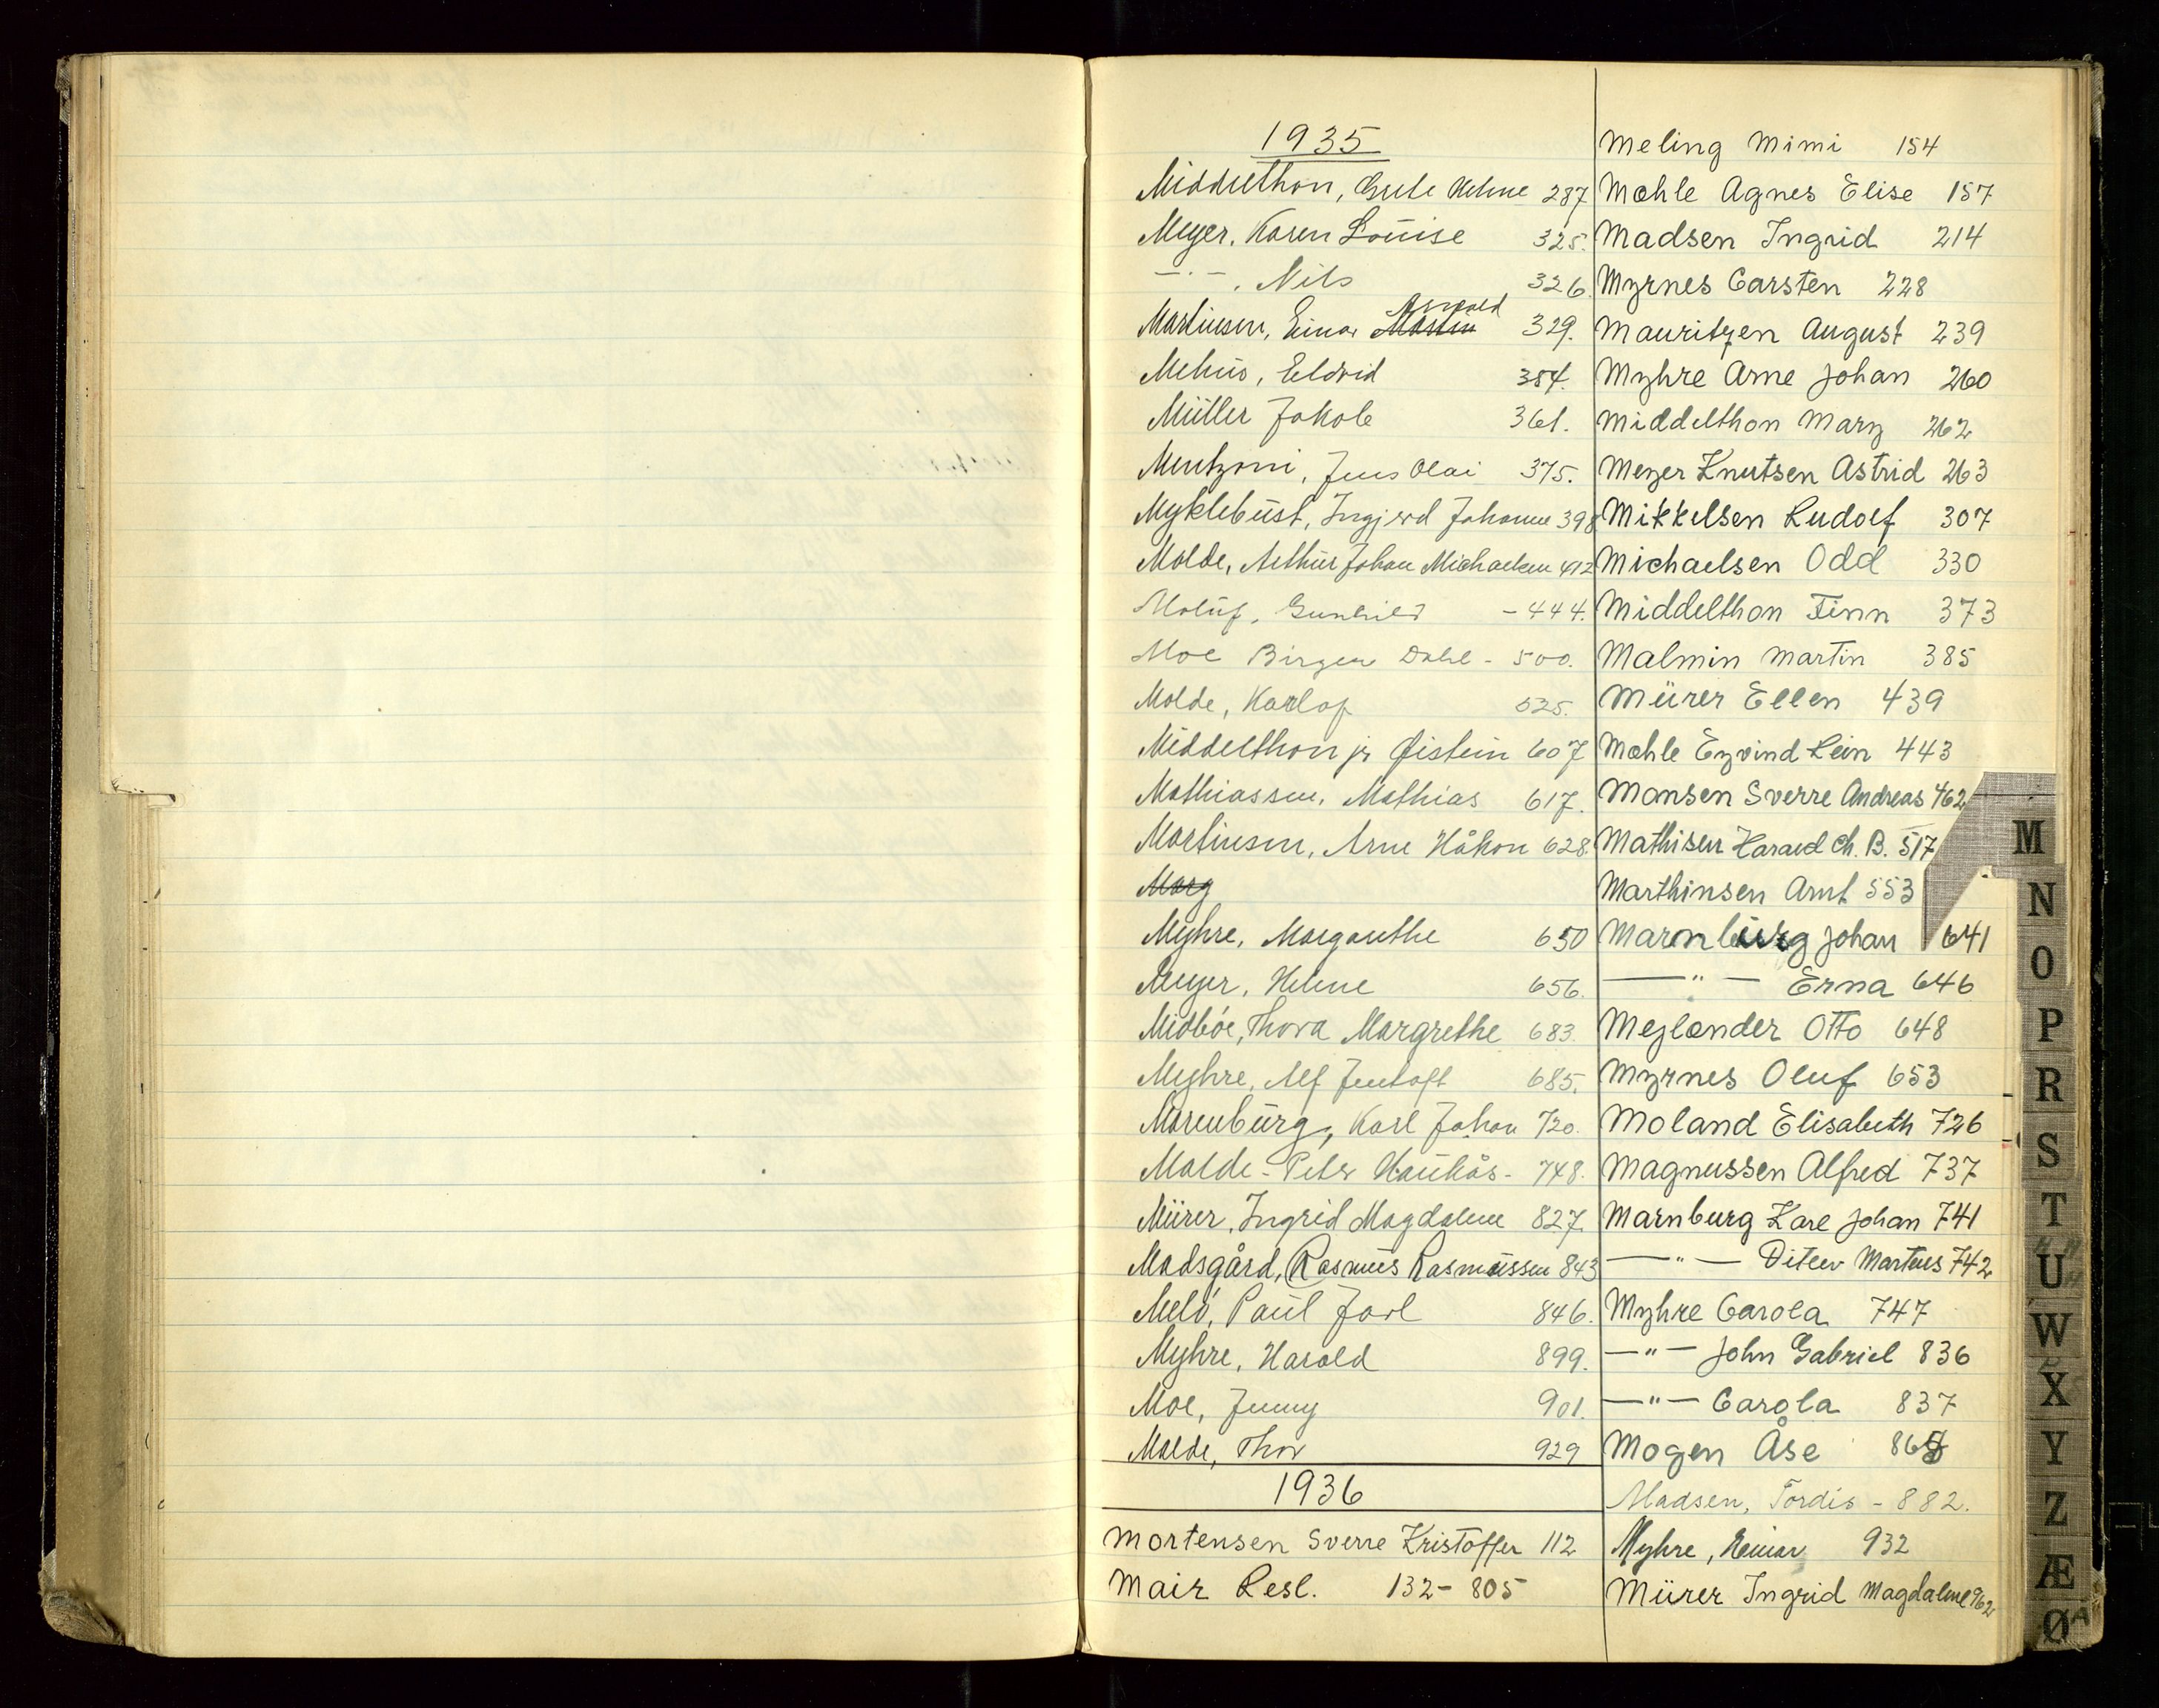 1935
Middelthon, Grete Helene 287
Meyer, Karen Louise 325.
—·—, Nils 326.
Martinsen, Einar Martin Arnvald 329.
Mehus, Eldrid 354.
Müller Jakob 361.
Mentzoni, Jens Olai 375.
Myklebust, Ingjerd Johanne 398
Molde, Arthur Johan Michaelsen 412
Gunhild - 444.
Moe Birger Dahl - 500.
Molde, Karlof 525.
Middelthon jr Øistein 607
Mathiassen, Mathias 617.
Martinsen, Arne Håkon 628.
Marg
Myhre, Margarethe 650
Meyer, Helene 656.
Midbøe, Thora Margrethe 683.
Myhre, Alf Jentoft 685.
Marenburg, Karl Johan 720.
Molde - Peter Haukås - 748.
Mürer, Ingrid Magdalene 827.
Madsgård, Rasmus Rasmussen 843
Melö, Paul Jarl 846.
Myhre, Harald 899.
Moe, Jenny 901.
Molde, Thor 929
1936
Mortensen Sverre Kristoffer 112
Mair Lesl. 132 - 805
Meling Mimi 154
Mæhle Agnes Elise 157
Madsen Ingrid 214
Myrnes Carsten 228
Mauritzen August 239
Myhre Arne Johan 260
Middelthon Mary 262
Meyer Knutsen Astrid 263
Mikkelsen Rudolf 307
Michaelsen Odd 330
Middelthon Finn 373
Malmin Martin 385
Mürer Ellen 439
Mæhle Eyvind Lein 443
Monsen Sverre Andreas 462
Mathisen Harald Ch. B. 517
Marthinsen Arnt 553
Marnburg Johan 641
—"— Erna 646
Mejlænder Otto 648
Myrnes Oluf 653
Moland Elisabeth 726
Magnussen Alfred 737
Marnburg Karl Johan 741
—"— Ditlev Martens 742
Myhre Carola 747
—"— John Gabriel 836
—"— Carola 837
Mogen Åse
Madsen, Tordis - 882.
Myhre, Einar 932
Mürer Ingrid Magdalene 962
M
N
O
P
R
S
T
U
W
X
Y
Z
Æ
Ø Å